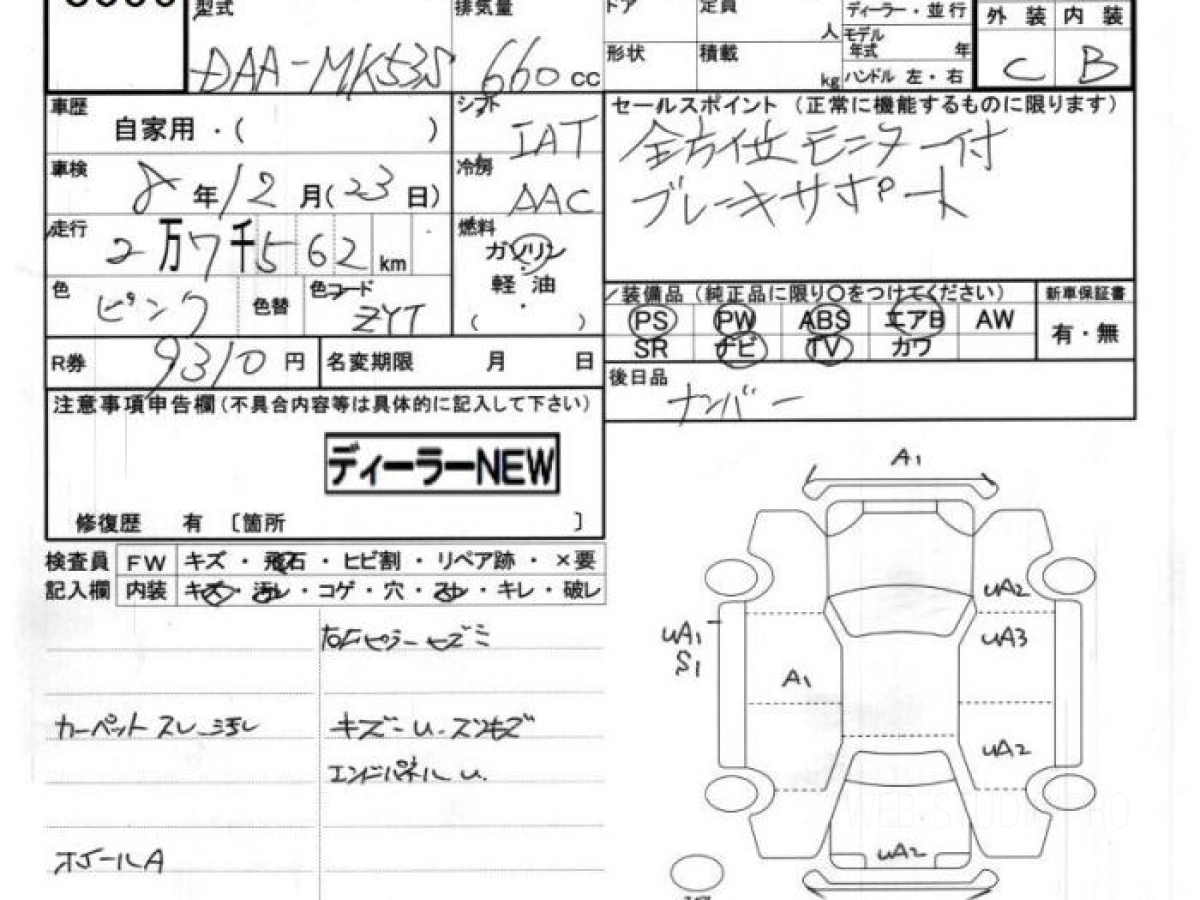 型式 排気量 ドア 定員 人 ディーラー・並行 外装 内装
DAA-MK53S 660 cc 形状 積載 kg モデル年式 年 C B
ハンドル 左・右
車歴 自家用・( ) シフト IAT
車検 8年12月(23日) 冷房 AAC
走行 2万7千562km 燃料 ガソリン・軽油・( )
色 ピンク 色替 色コード ZYT
R券 9310円 名変期限 月 日
セールスポイント (正常に機能するものに限ります)
全方位モニター付
ブレーキサポート
装備品(純正品に限り〇をつけてください) 新車保証書
PS PW ABS エアB AW 有・無
SR ナビ TV カワ
後日品 ナンバー
注意事項申告欄(不具合内容等は具体的に記入して下さい)
ディーラーNEW
修復歴 有 〔箇所 〕
検査員 FW キズ・飛石・ヒビ割・リペア跡・×要
記入欄 内装 キズ・汚レ・コゲ・穴・スレ・キレ・破レ
カーペットスレ 汚レ キズ U.
エンドパネル U.
ホイールA
A1
UA2
UA1 UA3
S1
A1
UA2
UA2
WEB-STUDIO PRO